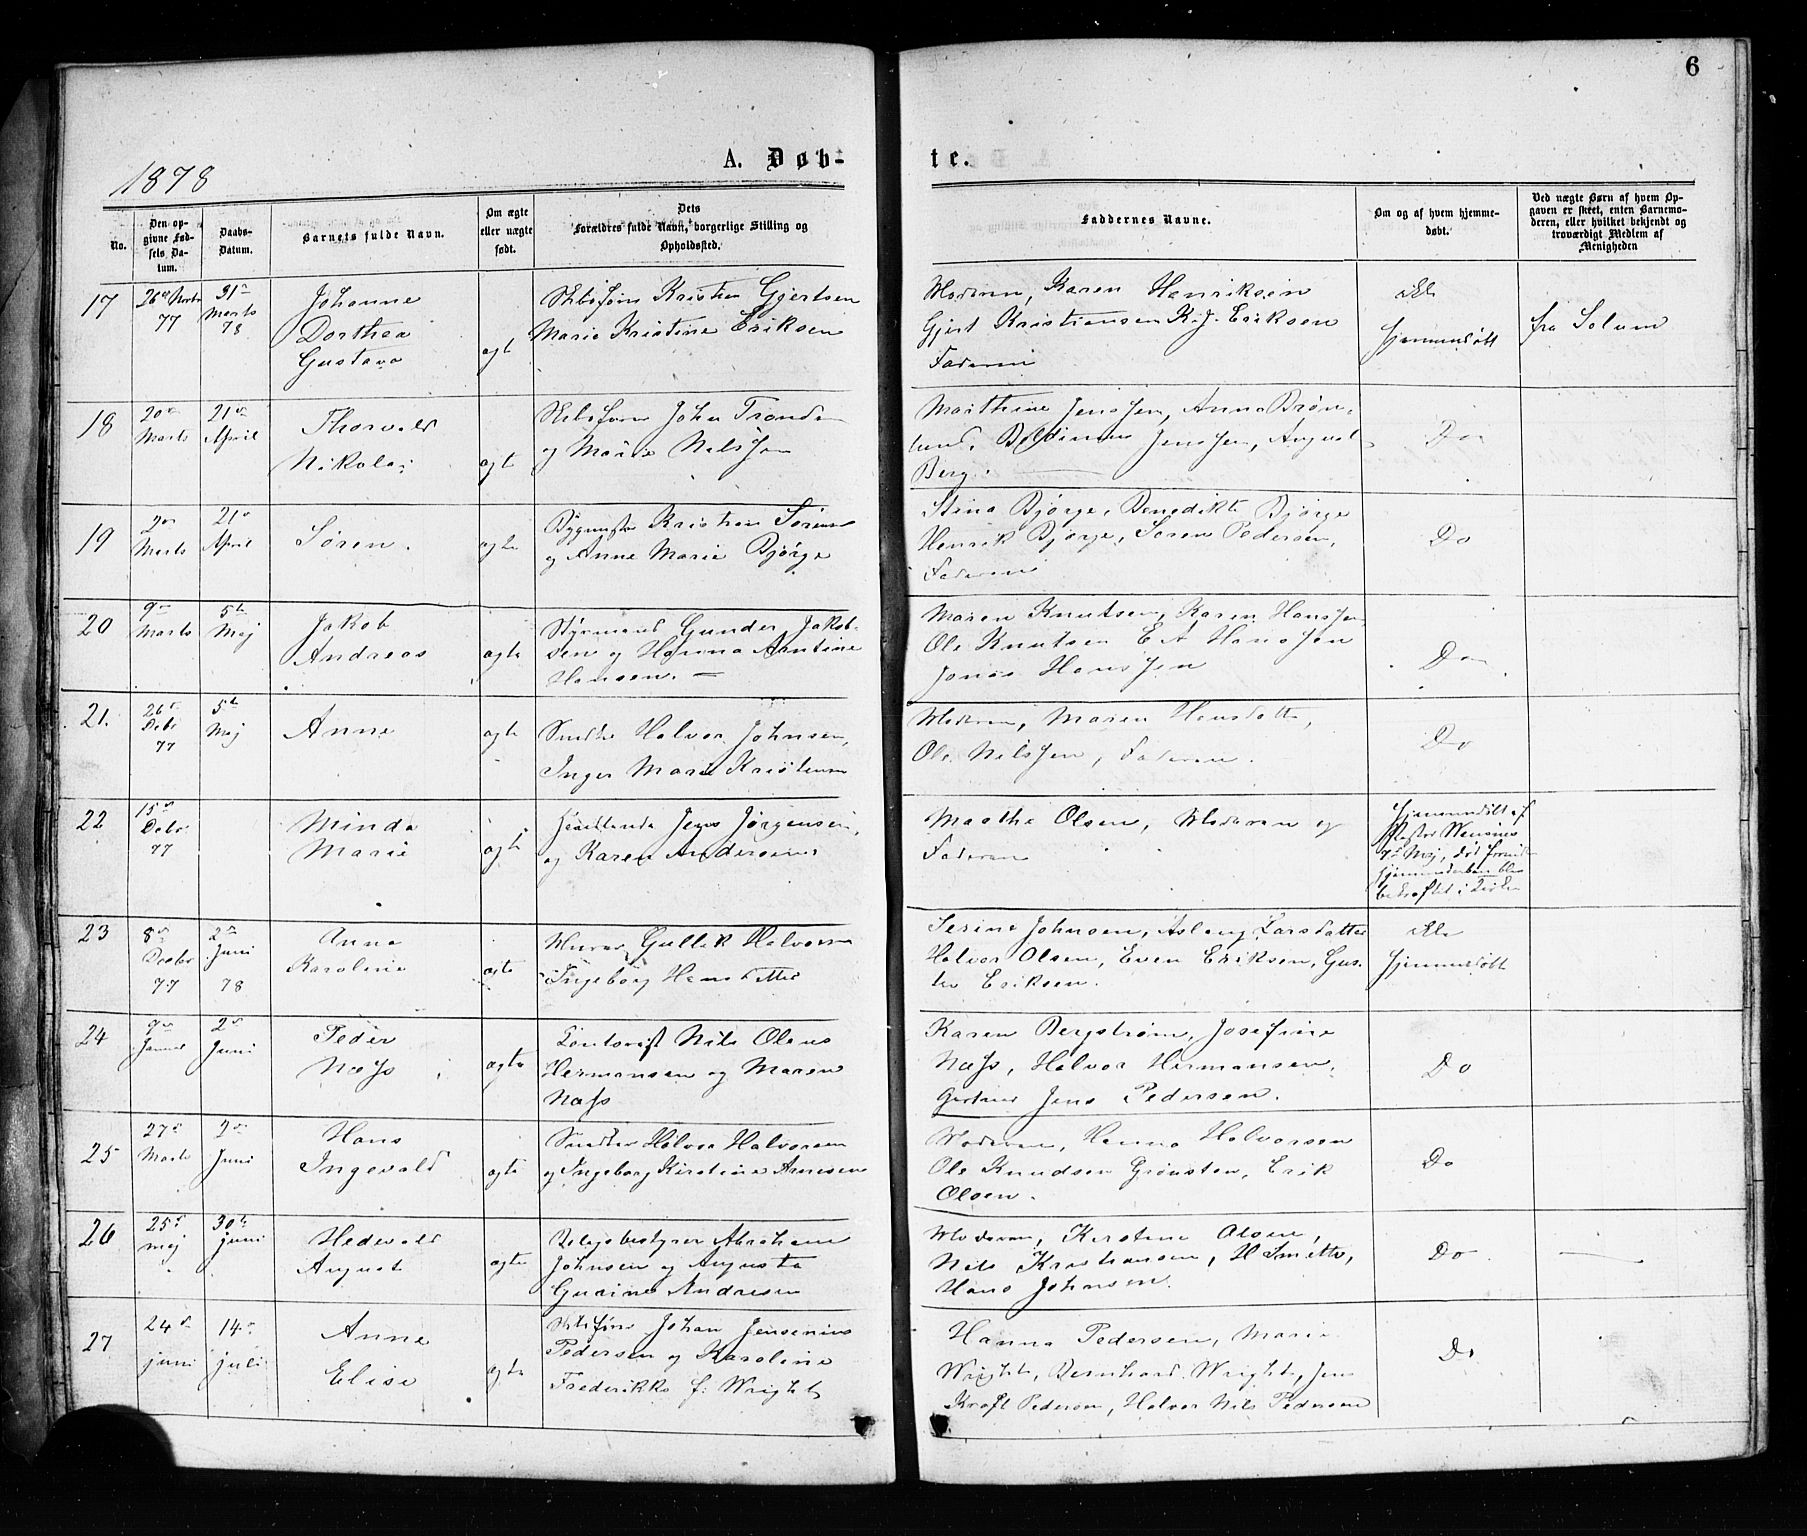 6
1878
A. Døb-
te.
No.
Den op-
givne Fød-
sels Da-
tum.
Daabs-
Datum.
Barnets fulde Navn.
Om ægte
eller uægte
født.
Dets
Forældres fulde Navn, borgerlige Stilling og
Opholdssted.
Faddernes Navne.
Om og af hvem hjemme-
døbt.
Ved uægte Børn af hvem Op-
gaven er skeet, enten Barnemo-
deren, eller hvilket bekjendt og
troværdigt Medlem af
Menigheden
17
26de Novbr
77
31te
Marts
78
Johanne
Dorthea
Gustava
ægte
Skibsføre Kristen Gjertsen
Marie Kristine Eriksen
Moderen, Karen Henriksen
Gjert Kristiansen K. J. Eriksen
Faderen
ikke
hjemmedøbt
fra Solum
18
20de
Marts
21de
April
Thorvald
Nikolai
ægte
Skibsføre John Tronds
og Marie Nilssen
Marthine Jenssen, Anna Brøn-
lund, Jenssen, August
Berg.
Do
19
2den
Marts
21de
April
Søren.
ægte
Bygmester Kristen Sørens
og Anne Marie Bjørge
Stina Bjørge, Benedikte Bjørge
Henrik Bjørge, Søren Pedersen,
Faderen
Do
20
9de
Marts
5te
Maj
Jakob
Andreas
ægte
Styrmand Gunder Jakob-
sen og Hanna Arntine
Hansen. —
Maren Knutsen, Karen Hanssen
Ole Knutsen E A Hanssen
Jonas Hanssen
Do
21.
26de
Debr
77
5te
Maj
Anne
ægte
Smd Halvor Johnsen,
Inger Marie Kristensen
Moderen, Maren Hansdatter,
Ole Nilssen, Faderen.
Do
22
15de
Debr
77
Minda
Marie
ægte
Jens Jørgensen,
og Karen Andersen
Marthe Olsen, Moderen og
Faderen
Hjemmedøbt af
Pastor
7de Maj, død forinden
hjemmedaaben blev
bekræftet i Kirken
23
8de
Decbr
77
2den
Juni
78
Anna
Karoline
ægte
Murer Gullik Halvorsen
Ingeborg Hansdatter
Serine Johnsen, Aslaug Larsdatter
Halvor Olsen, Even Eriksen, Gus-
tav Eriksen.
ikke
hjemmedøbt
24
9de
Januar
2den
Juni
Peder
Næss
ægte
Kontorist Nils Olaus
Hermansen og Maren
Næss
Karen Bergstrøm, Josefine
Næss, Halvor Hermansen,
Jens Pedersen.
Do
25
27de
Marts
2den
Juni
Hans
Ingevald
ægte
Halvor Halvorsen
og Ingeborg Kirstine Arnesen
Moderen, Hanna Halvorsen
Ole Knudsen Grønsten, Erik
Olsen.
Do
26
25de
Maj
30te
Juni
Hedevald
August
ægte
Abraham
Johnsen og Augusta
Guaine Andresen
Moderen, Kirstine Olsen,
Nils Kristiansen, H Smette,
Hans Johnsen.
Do
27
24de
juni
14de
juli
Anne
Elise
ægte
Skibsføre Johan Jensenius
Pedersen og Karoline
Frederikke f: Wright
Hanna Pedersen, Marie
Wright, Bernhard Wright, Jens
Kraft Pedersen, Halvor Nils Pedersen
Do